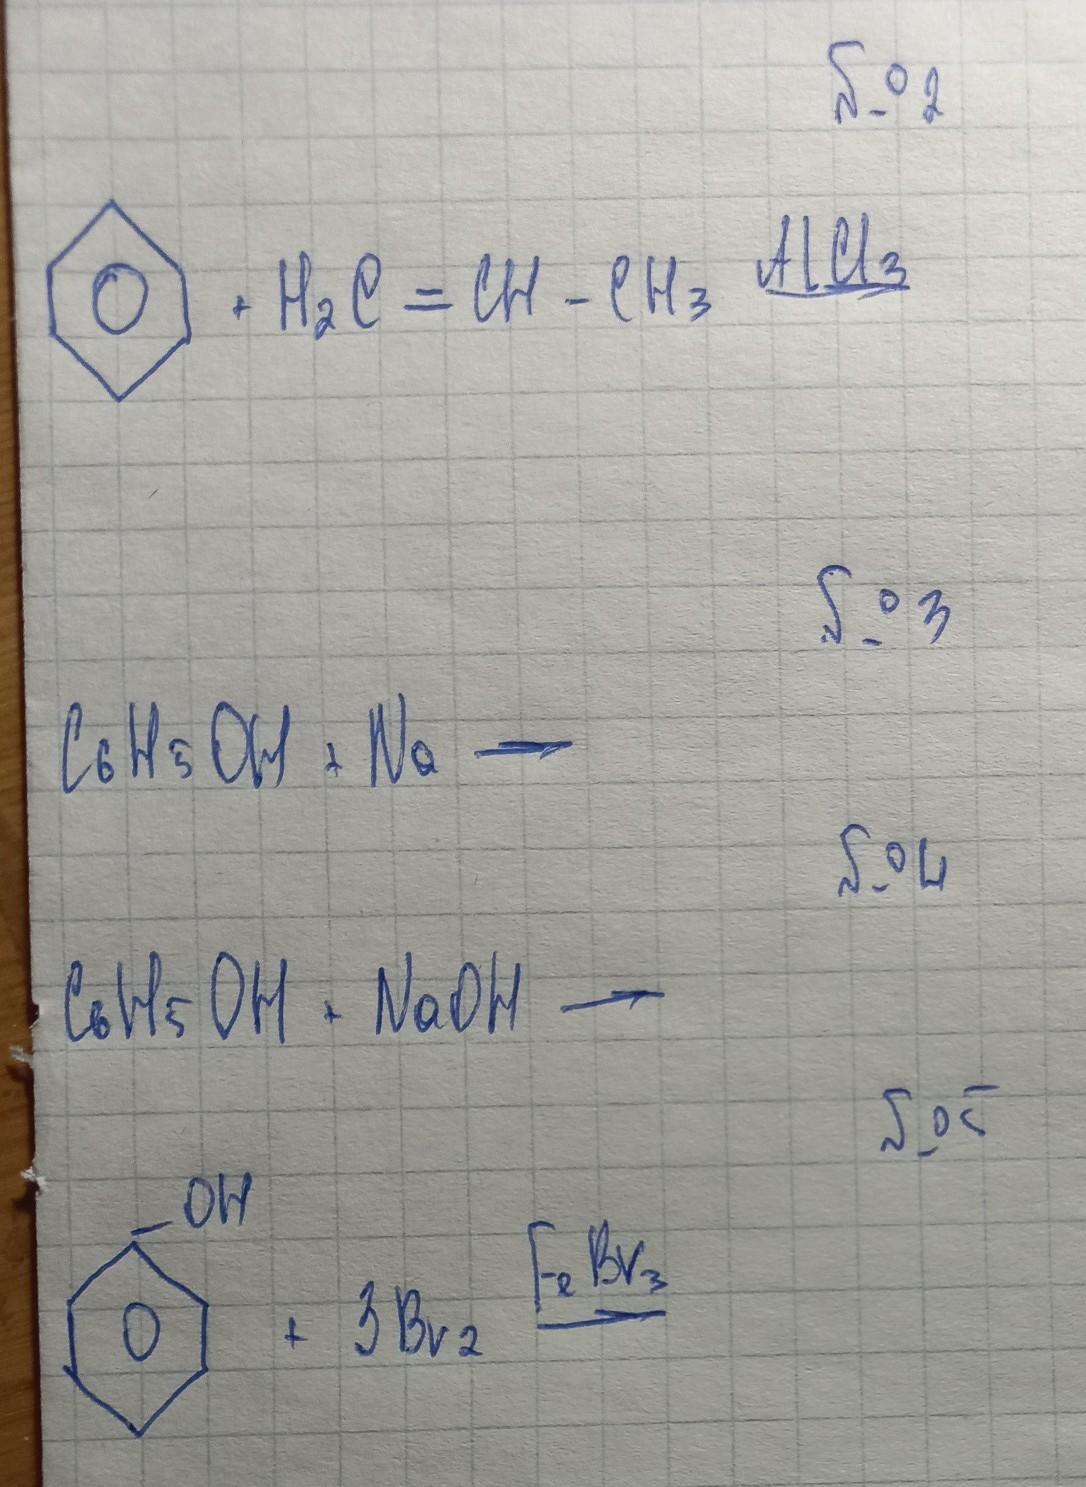 №2
+ H₂C = CH - CH₃ AlCl₃
№3
C₆H₅OH + Na →
№4
C₆H₅OH + NaOH →
№5
OH
+ 3Br₂ FeBr₃ →